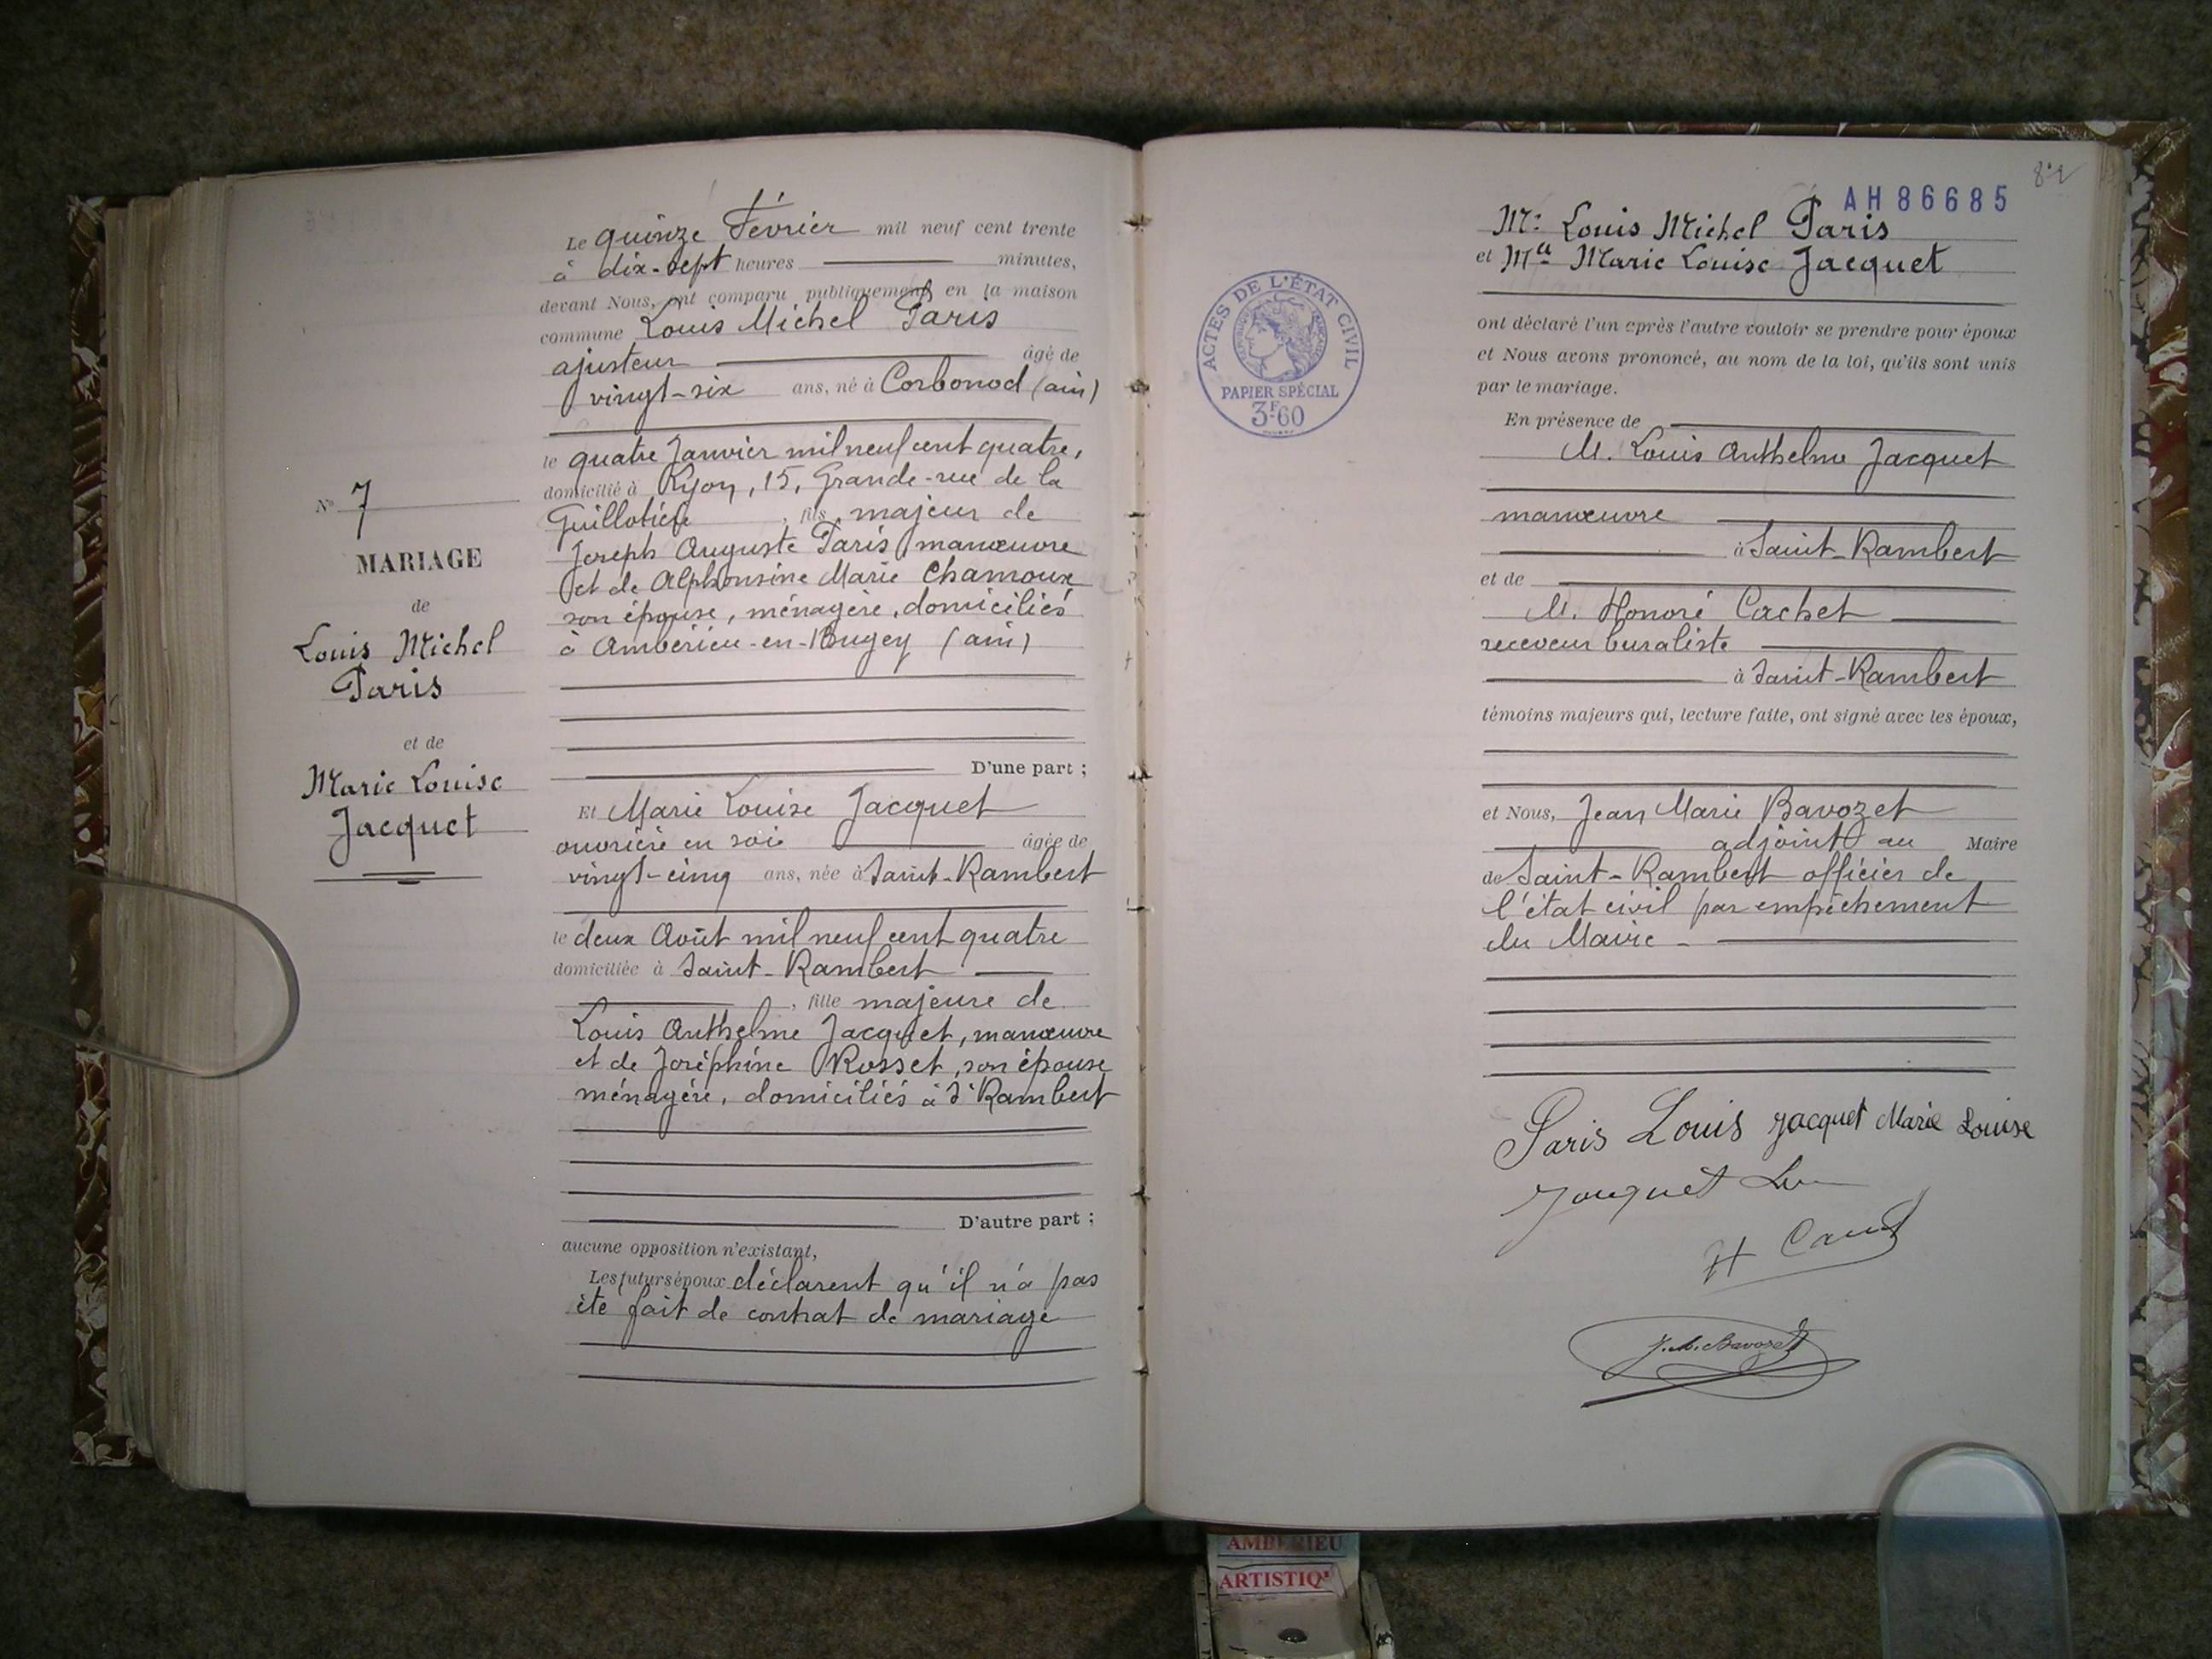 Le quinze Février mil neuf cent trente
à dix-sept heures minutes,
devant Nous, ont comparu publiquement en la maison
commune Louis Michel Paris
ajusteur âgé de
vingt-six ans, né à Corbonod (ain)
le quatre Janvier mil neuf cent quatre,
domicilié à Lyon, 15, Grande-rue de la
Guillotière, fils majeur de
Joseph Auguste Paris manœuvre
et de Alphonsine Marie Chamoux
son épouse, ménagère, domiciliés
à Ambérieu-en-Bugey (ain)
D'une part ;
Nº 7
MARIAGE
de
Louis Michel
Paris
et de
Marie Louise
Jacquet
Et Marie Louise Jacquet
ouvrière en soie âgée de
vingt-cinq ans, née à Saint-Rambert
le deux Août mil neuf cent quatre
domiciliée à Saint-Rambert
, fille majeure de
Louis Anthelme Jacquet, manœuvre
et de Joséphine Rosset, son épouse
ménagère, domiciliés à St Rambert
D'autre part ;
aucune opposition n'existant,
Les futurs époux déclarent qu'il n'a pas
été fait de contrat de mariage
AH 86685
Mr Louis Michel Paris
et Mlle Marie Louise Jacquet
ACTES DE L'ÉTAT CIVIL
PAPIER SPÉCIAL
3F60
ont déclaré l'un après l'autre vouloir se prendre pour époux
et Nous avons prononcé, au nom de la loi, qu'ils sont unis
par le mariage.
En présence de
M. Louis Anthelme Jacquet
manœuvre
à Saint-Rambert
et de
M. Honoré Cachet
receveur buraliste
à Saint-Rambert
témoins majeurs qui, lecture faite, ont signé avec les époux,
et Nous, Jean Marie Bavozet
adjoint au Maire
de Saint-Rambert officier de
l'état civil par empêchement
du Maire -
Paris Louis Jacquet Marie Louise
J.M. Bavozet
AMBERIEU
ARTISTIQ